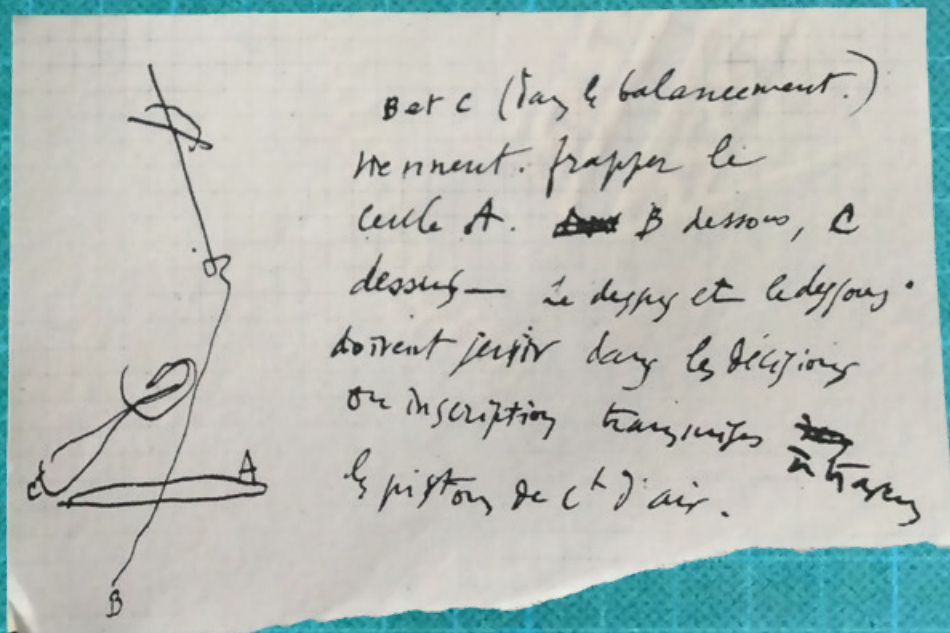 B et C (dans le balancement.)
viennent. frapper le
cercle A. B dessous, C
dessus — Le dessus et le dessous
doivent servir dans les décisions
ou inscription transmises
à travers
les pistons de Ct d'air.
A
C
B